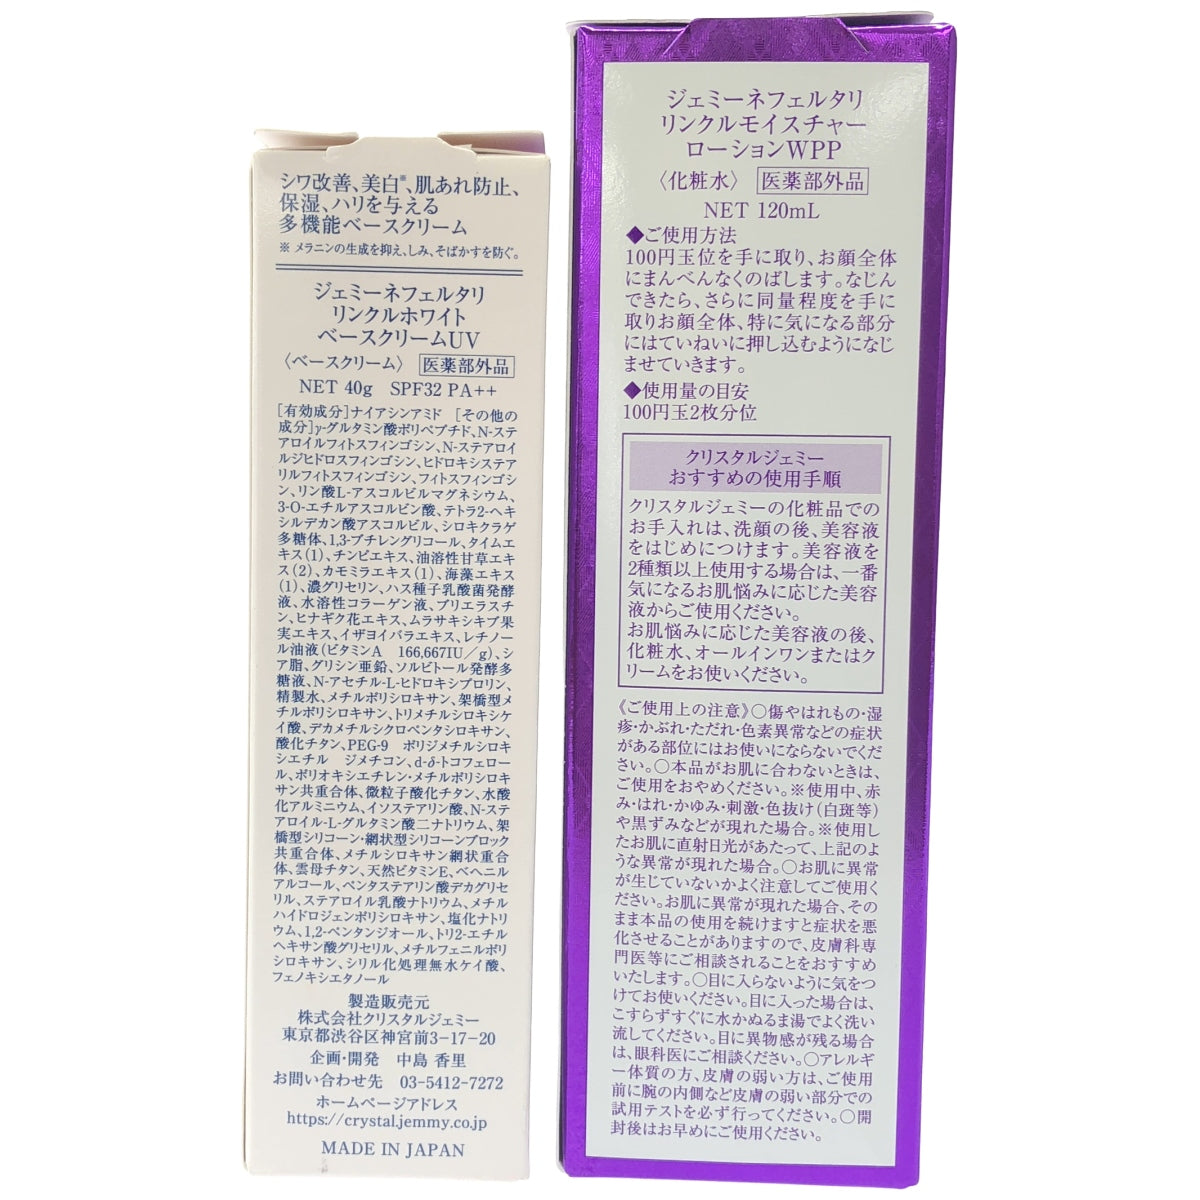 シワ改善、美白※、肌あれ防止、
保湿、ハリを与える
多機能ベースクリーム
※ メラニンの生成を抑え、しみ、そばかすを防ぐ。
ジェミーネフェルタリ
リンクルホワイト
ベースクリームUV
〈ベースクリーム〉 医薬部外品
NET 40g SPF32 PA++
[有効成分]ナイアシンアミド [その他の
成分]γ-グルタミン酸ポリペプチド、N-ステ
アロイルフィトスフィンゴシン、N-ステアロイ
ルジヒドロスフィンゴシン、ヒドロキシステア
リルフィトスフィンゴシン、フィトスフィンゴシ
ン、リン酸L-アスコルビルマグネシウム、
3-O-エチルアスコルビン酸、テトラ2-ヘキ
シルデカン酸アスコルビル、シロキクラゲ
多糖体、1,3-ブチレングリコール、タイムエ
キス(1)、チンピエキス、油溶性甘草エキ
ス(2)、カモミラエキス(1)、海藻エキス
(1)、濃グリセリン、ハス種子乳酸菌発酵
液、水溶性コラーゲン液、プリエラスチ
ン、ヒナギク花エキス、ムラサキシキブ果
実エキス、イザヨイバラエキス、レチノー
ル油液(ビタミンA 166,667IU/g)、シ
ア脂、グリシン亜鉛、ソルビトール発酵多
糖液、N-アセチル-L-ヒドロキシプロリン、
精製水、メチルポリシロキサン、架橋型メ
チルポリシロキサン、トリメチルシロキシケ
イ酸、デカメチルシクロペンタシロキサン、
酸化チタン、PEG-9 ポリジメチルシロキ
シエチル ジメチコン、d-δ-トコフェロー
ル、ポリオキシエチレン・メチルポリシロキ
サン共重合体、微粒子酸化チタン、水酸
化アルミニウム、イソステアリン酸、N-ステ
アロイル-L-グルタミン酸二ナトリウム、架
橋型シリコーン・網状型シリコーンブロック
共重合体、メチルシロキサン網状重合
体、雲母チタン、天然ビタミンE、ベヘニル
アルコール、ペンタステアリン酸デカグリセ
リル、ステアロイル乳酸ナトリウム、メチル
ハイドロジェンポリシロキサン、塩化ナトリ
ウム、1,2-ペンタンジオール、トリ2-エチル
ヘキサン酸グリセリル、メチルフェニルポリ
シロキサン、シリル化処理無水ケイ酸、
フェノキシエタノール
製造販売元
株式会社クリスタルジェミー
東京都渋谷区神宮前3-17-20
企画・開発 中島 香里
お問い合わせ先 03-5412-7272
ホームページアドレス
https://crystal.jemmy.co.jp
MADE IN JAPAN
ジェミーネフェルタリ
リンクルモイスチャー
ローションWPP
〈化粧水〉 医薬部外品
NET 120mL
◆ご使用方法
100円玉位を手に取り、お顔全体
にまんべんなくのばします。なじん
できたら、さらに同量程度を手に
取りお顔全体、特に気になる部分
にはていねいに押し込むようになじ
ませていきます。
◆使用量の目安
100円玉2枚分位
クリスタルジェミー
おすすめの使用手順
クリスタルジェミーの化粧品での
お手入れは、洗顔の後、美容液
をはじめにつけます。美容液を
2種類以上使用する場合は、一番
気になるお肌悩みに応じた美容
液からご使用ください。
お肌悩みに応じた美容液の後、
化粧水、オールインワンまたはク
リームをお使いください。
《ご使用上の注意》○傷やはれもの・湿
疹・かぶれ・ただれ・色素異常などの症状
がある部位にはお使いにならないでくだ
さい。○本品がお肌に合わないときは、
ご使用をおやめください。※使用中、赤
み・はれ・かゆみ・刺激・色抜け(白斑等)
や黒ずみなどが現れた場合。※使用し
たお肌に直射日光があたって、上記のよ
うな異常が現れた場合。○お肌に異常
が生じていないかよく注意してご使用く
ださい。お肌に異常が現れた場合、その
まま本品の使用を続けますと症状を悪
化させることがありますので、皮膚科専
門医等にご相談されることをおすすめ
いたします。○目に入らないように気をつ
けてお使いください。目に入った場合は、
こすらずすぐに水かぬるま湯でよく洗い
流してください。目に異物感が残る場合
は、眼科医にご相談ください。○アレルギ
ー体質の方、皮膚の弱い方は、ご使用
前に腕の内側など皮膚の弱い部分での
試用テストを必ず行ってください。○開
封後はお早めにご使用ください。